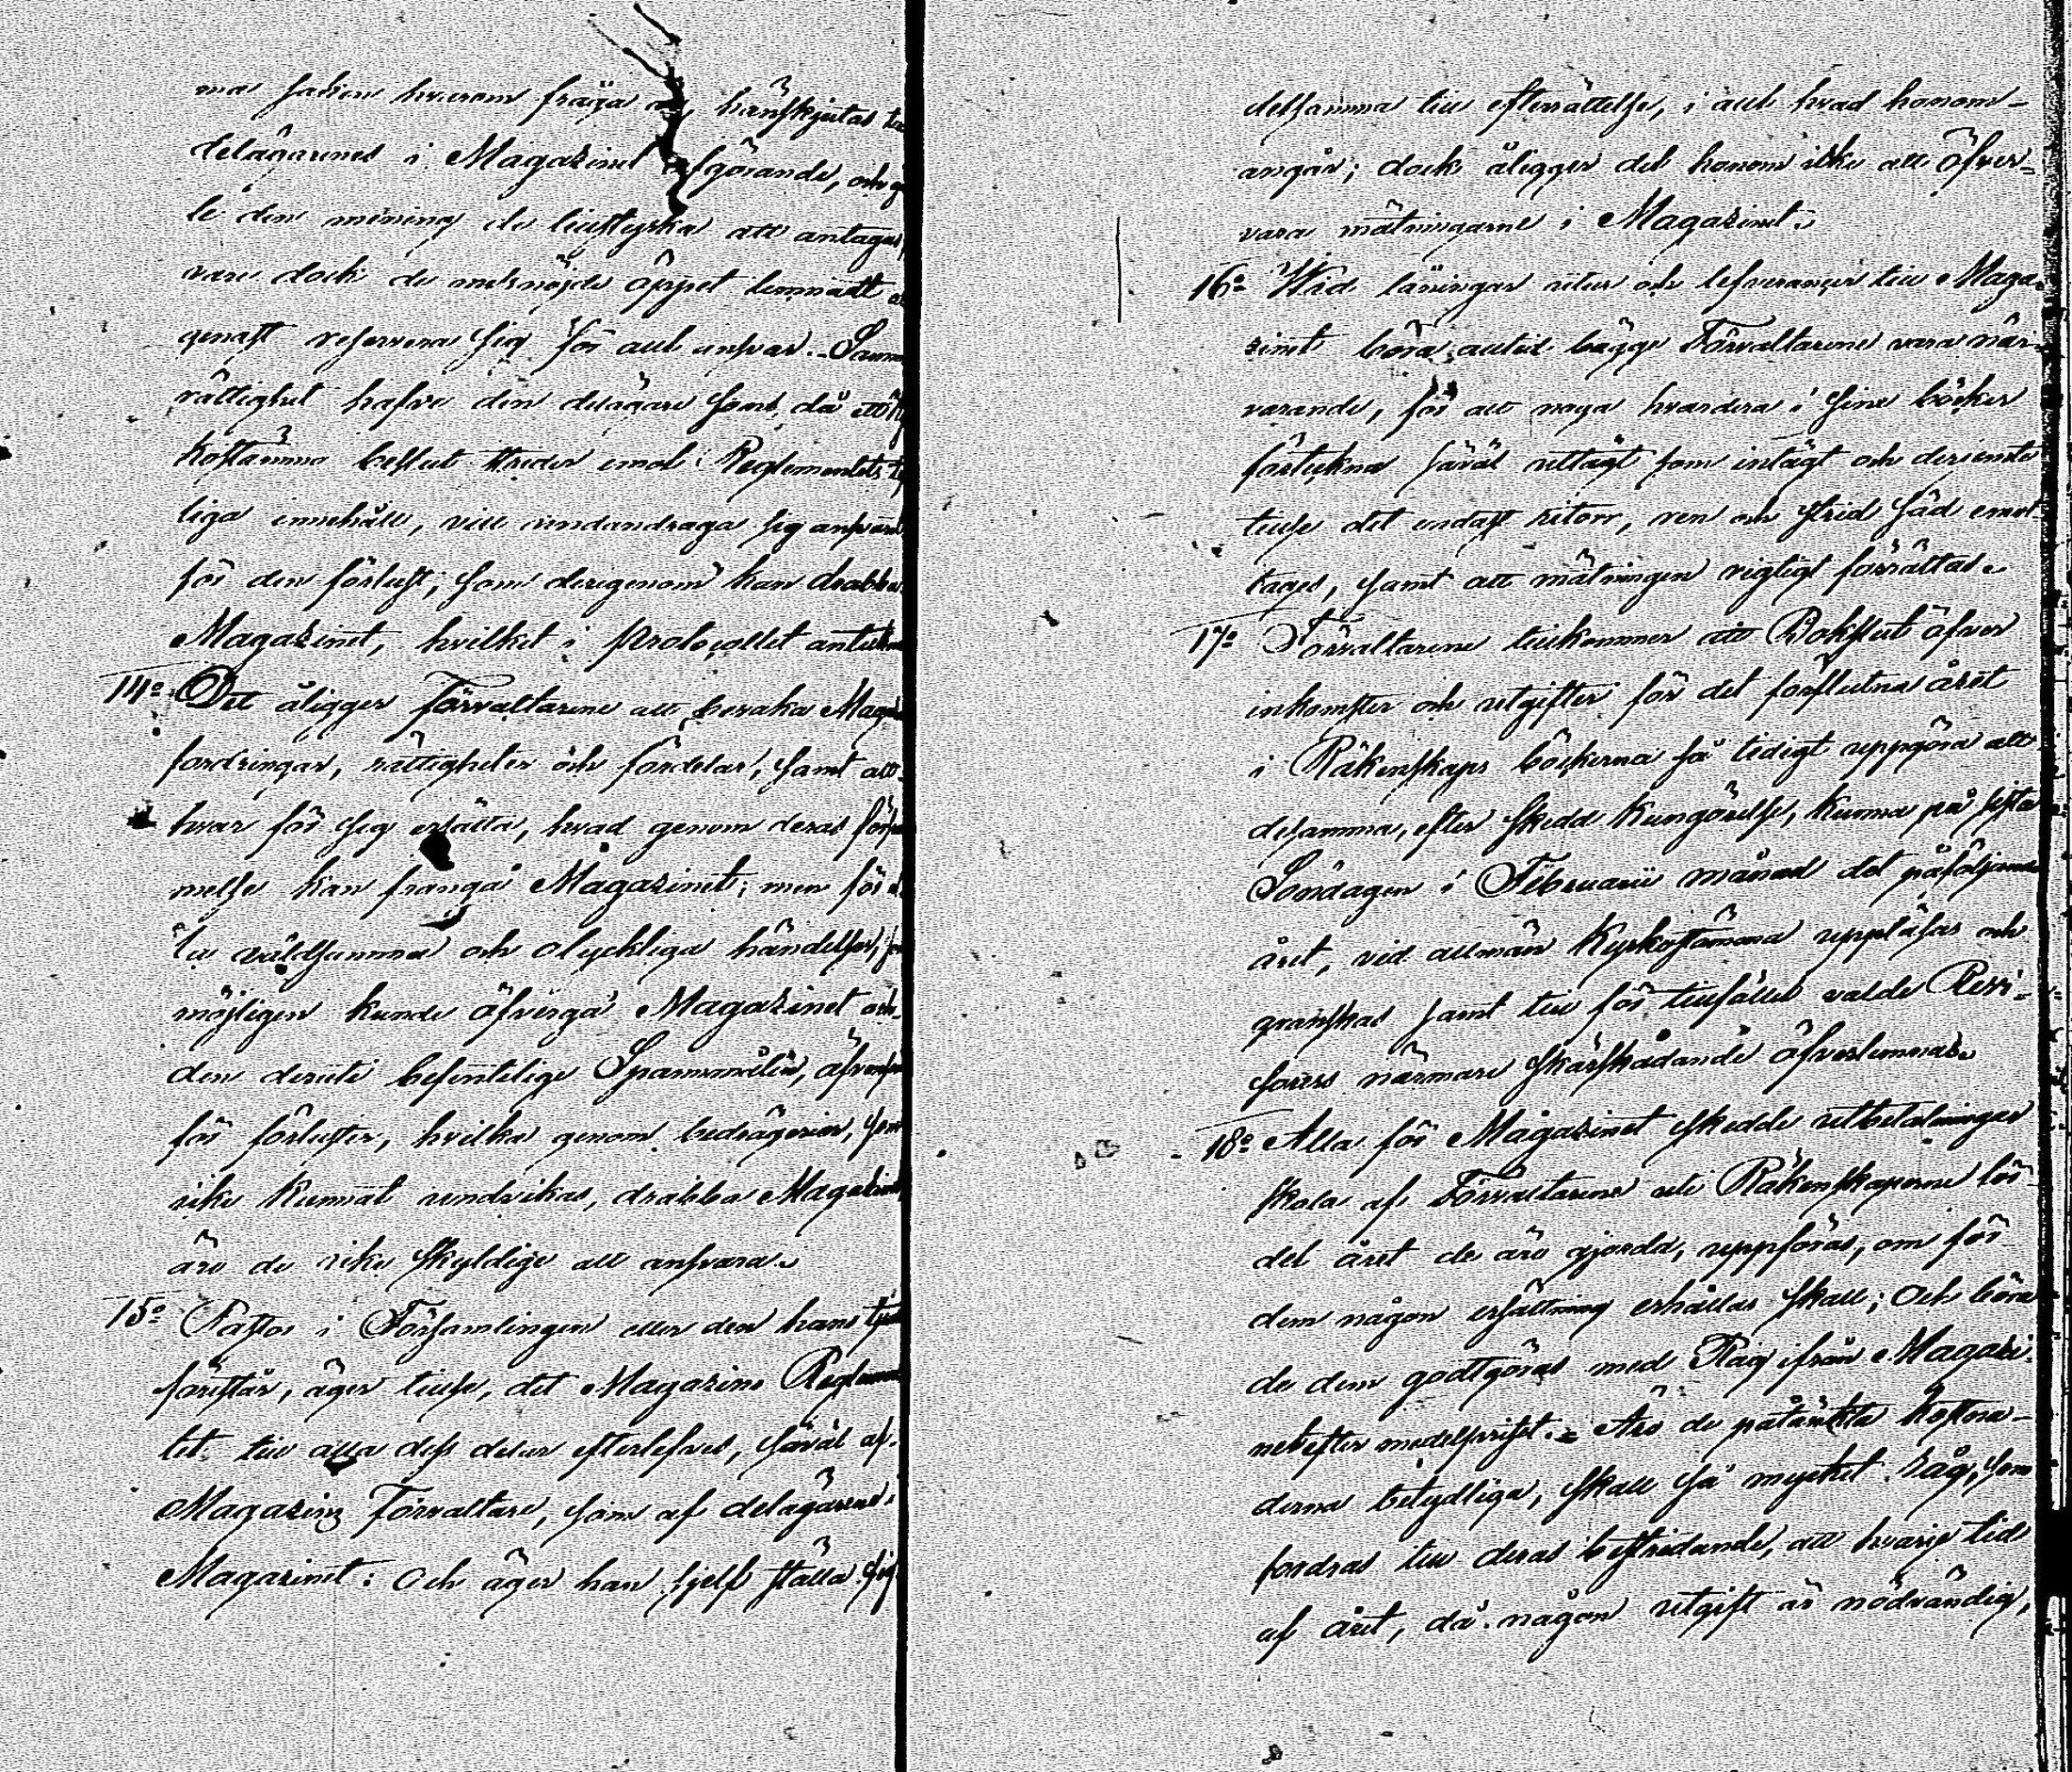 ma saken hvarom fråga är hänskjutas till
delägarnes i Magazinet afgörande, och
le den mening de tillstyrka att antagas,
vare dock de missnöjde öppet lemnadt
genast reservera sig för allt ansvar. Samma
rättighet hafve den delägare som, då ett
kostämma beslut strider emot Reglementets
liga innehåll, vill undandraga sig ansvar
för den förlust, som derigenom kan drabba
Magazinet, hvilket i Protocollet antecknas
14o Det åligger Förvaltarene att bevaka Maga
fordringar, rättigheter och fördelar, samt att
hvar för sig ersätta, hvad genom deras försum
melse kan frångå Magazinet; men för
la våldsamma och olyckliga händelser,
möjligen kunde öfvergå Magazinet och
den deruti befintelige Spannmålen, äfvensom
för förluster, hvilka genom bedrägerier, som
icke kunnat undvikas, drabba Magazinet
äro de icke skyldige att ansvara.
15o Pastor i Församlingen eller den hans
förestår, äger tillse, det Magazins Reglemen
tet till alla dess delar efterlefves, såväl af
Magazins Förvaltare, som af delägarene
Magazinet: Och äger han sjelf ställa sig
detsamma till efterrättelse, i allt hvad honom
angår; dock åligger det honom icke att öfver-
vara mätningarne i Magazinet.
16o Wid låningar utur och lefveranser till Maga-
zinet böra alltid bägge Förvaltarene vara när-
varande, för att noga hvardera i sine böcker
förtekna såväl uttagt som intagt och derjemte
tillse det endast kitorr, ren och strid säd emot
tages, samt att mätningen rigtigt förrättas.
17o Förvaltarene tillkommer att Bokslut öfver
inkomster och utgifter för det förflutna året
i Räkenskaps böckerna så tidigt uppgöra att
desamma, efter skedd kungörelse, kunna på sista
Söndagen i Februarii månad det påföljande
året, vid allmän Kyrkostämma uppläsas och
granskas samt till för tillfället valde Revi-
sorers närmare skärskådande öfverlemnas.
18o Alla för Magazinet skedde utbetalningar
skola af Förvaltarene uti Räkenskaperne för
det året de äro gjorda, uppföras, om för
dem någon ersättning erhållas skall; Och böra
de dem godtgöras med Råg ifrån Magazi-
net efter medelpriset. Äro de påtänkta kostna-
derna betydliga, skall så mycket Råg, som
fordras till deras bestridande, all hvarje tid
af året, då någon utgift är nödvändig,